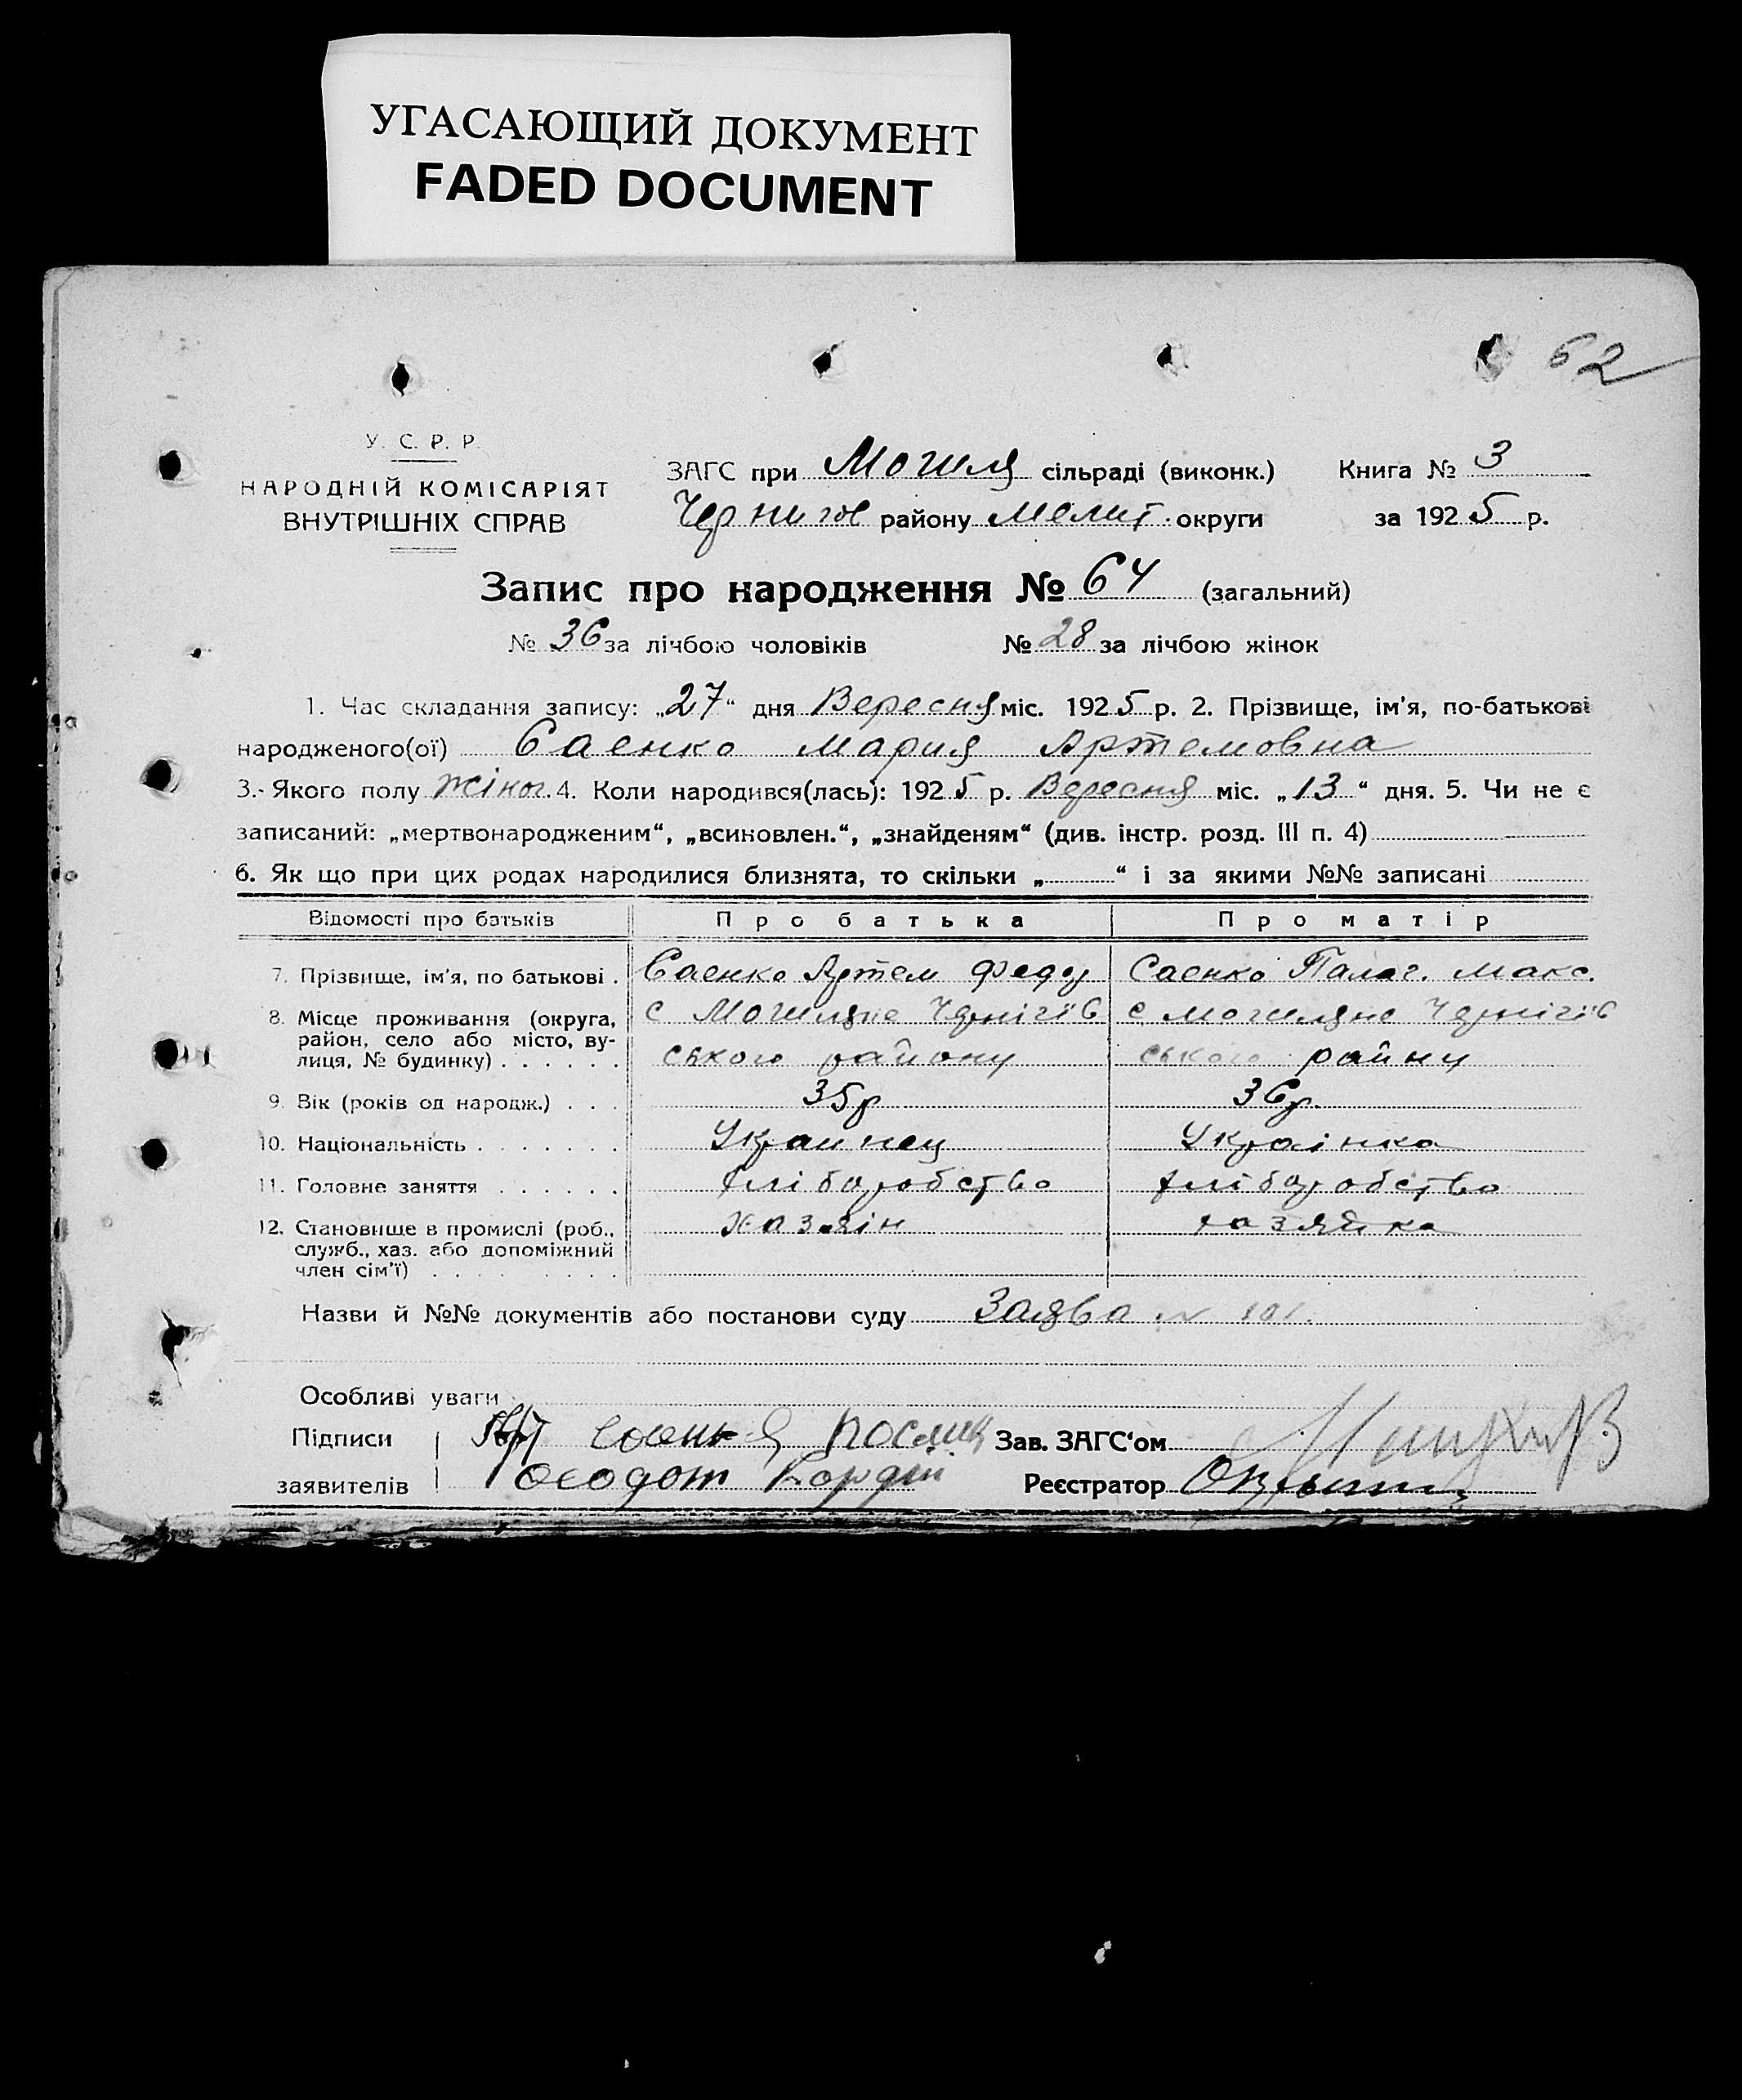 УГАСАЮЩИЙ ДОКУМЕНТ
FADED DOCUMENT
62
У. С. Р. Р.
НАРОДНІЙ КОМІСАРІЯТ
ВНУТРІШНІХ СПРАВ
ЗАГС при Могиля сільраді (виконк.) Книга № 3
Чернигов району Мелит. округи за 1925 р.
Запис про народження № 64 (загальний)
№ 36 за лічбою чоловіків № 28 за лічбою жінок
1. Час складання запису: „27“ дня Вересня міс. 1925 р. 2. Прізвище, ім'я, по-батькові
народженого(ої) Саенко Мария Артемовна
3.- Якого полу жіноч. 4. Коли народився(лась): 1925 р. Вересня міс. „13“ дня. 5. Чи не є
записаний: „мертвонародженим“, „всиновлен.“, „знайденям“ (див. інстр. розд. III п. 4)
6. Як що при цих родах народилися близнята, то скільки „ “ і за якими №№ записані
Відомості про батьків Про батька Про матір
7. Прізвище, ім'я, по батькові . Саенко Артем Федор Саенко Палаг. Макс.
8. Місце проживання (округа, с Могиляне Чернігів с Могиляне Чернігів
район, село або місто, ву-
лиця, № будинку) . . . . . . ського району ського райну
9. Вік (років од народж.) . . . 35р 36р.
10. Національність . . . . . . . Украинец Украінка
11. Головне заняття . . . . . . хліборобство хліборобство
12. Становище в промислі (роб., хазяін хазяйка
служб., хаз. або допоміжний
член сім'ї) . . . . . . . . .
Назви й №№ документів або постанови суду Заява № 101.
Особливі уваги
Підписи Зав. ЗАГС‘ом
заявителів Феодот Кордій Реєстратор